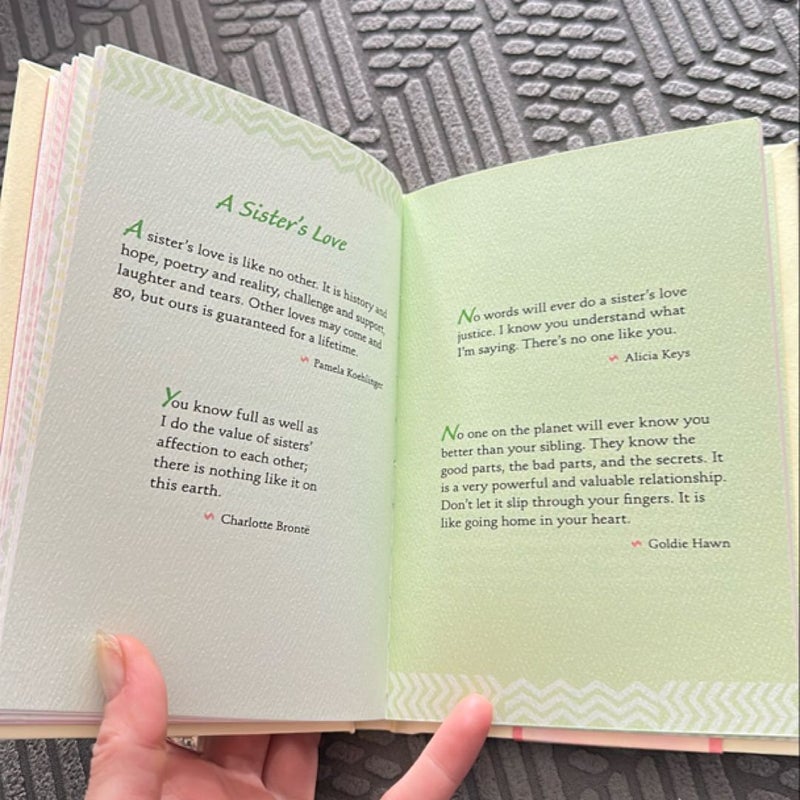 A Sister's Love
A sister's love is like no other. It is history and
hope, poetry and reality, challenge and support,
laughter and tears. Other loves may come and
go, but ours is guaranteed for a lifetime.
Pamela Koehlinger
You know full as well as
I do the value of sisters'
affection to each other;
there is nothing like it on
this earth.
Charlotte Brontë
No words will ever do a sister's love
justice. I know you understand what
I'm saying. There's no one like you.
Alicia Keys
No one on the planet will ever know you
better than your sibling. They know the
good parts, the bad parts, and the secrets. It
is a very powerful and valuable relationship.
Don't let it slip through your fingers. It is
like going home in your heart.
Goldie Hawn